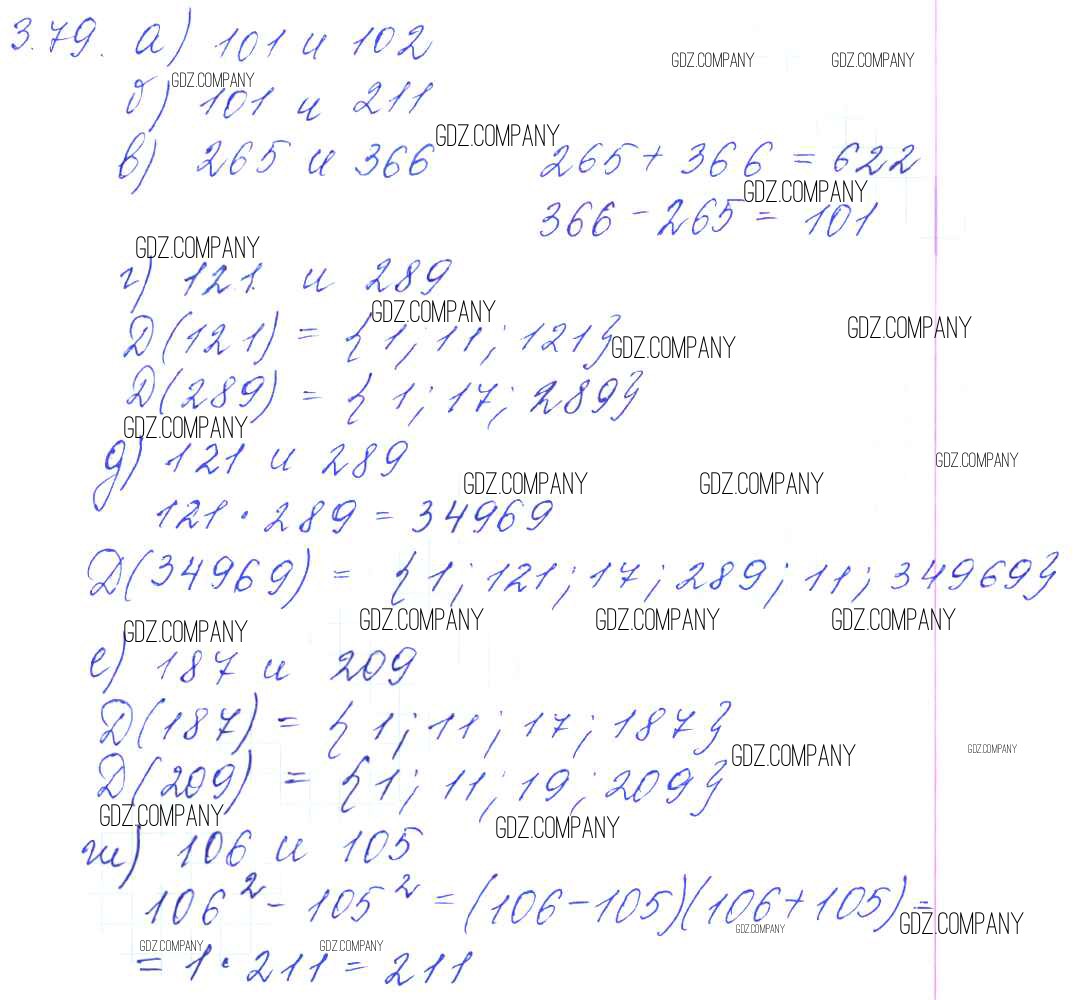 3.79. а) 101 и 102
GDZ.COMPANY GDZ.COMPANY
GDZ.COMPANY
б) 101 и 211
GDZ.COMPANY
в) 265 и 366 265 + 366 = 622
GDZ.COMPANY
366 - 265 = 101
GDZ.COMPANY
г) 121 и 289
GDZ.COMPANY GDZ.COMPANY
Д(121) = {1; 11; 121}
GDZ.COMPANY
Д(289) = {1; 17; 289}
GDZ.COMPANY
д) 121 и 289
GDZ.COMPANY
GDZ.COMPANY GDZ.COMPANY
121 · 289 = 34969
Д(34969) = {1; 121; 17; 289; 11; 34969}
GDZ.COMPANY GDZ.COMPANY GDZ.COMPANY
GDZ.COMPANY
е) 187 и 209
Д(187) = {1; 11; 17; 187}
GDZ.COMPANY GDZ.COMPANY
Д(209) = {1; 11; 19; 209}
GDZ.COMPANY GDZ.COMPANY
ж) 106 и 105
106² - 105² = (106 - 105)(106 + 105) =
GDZ.COMPANY GDZ.COMPANY
GDZ.COMPANY GDZ.COMPANY
= 1 · 211 = 211